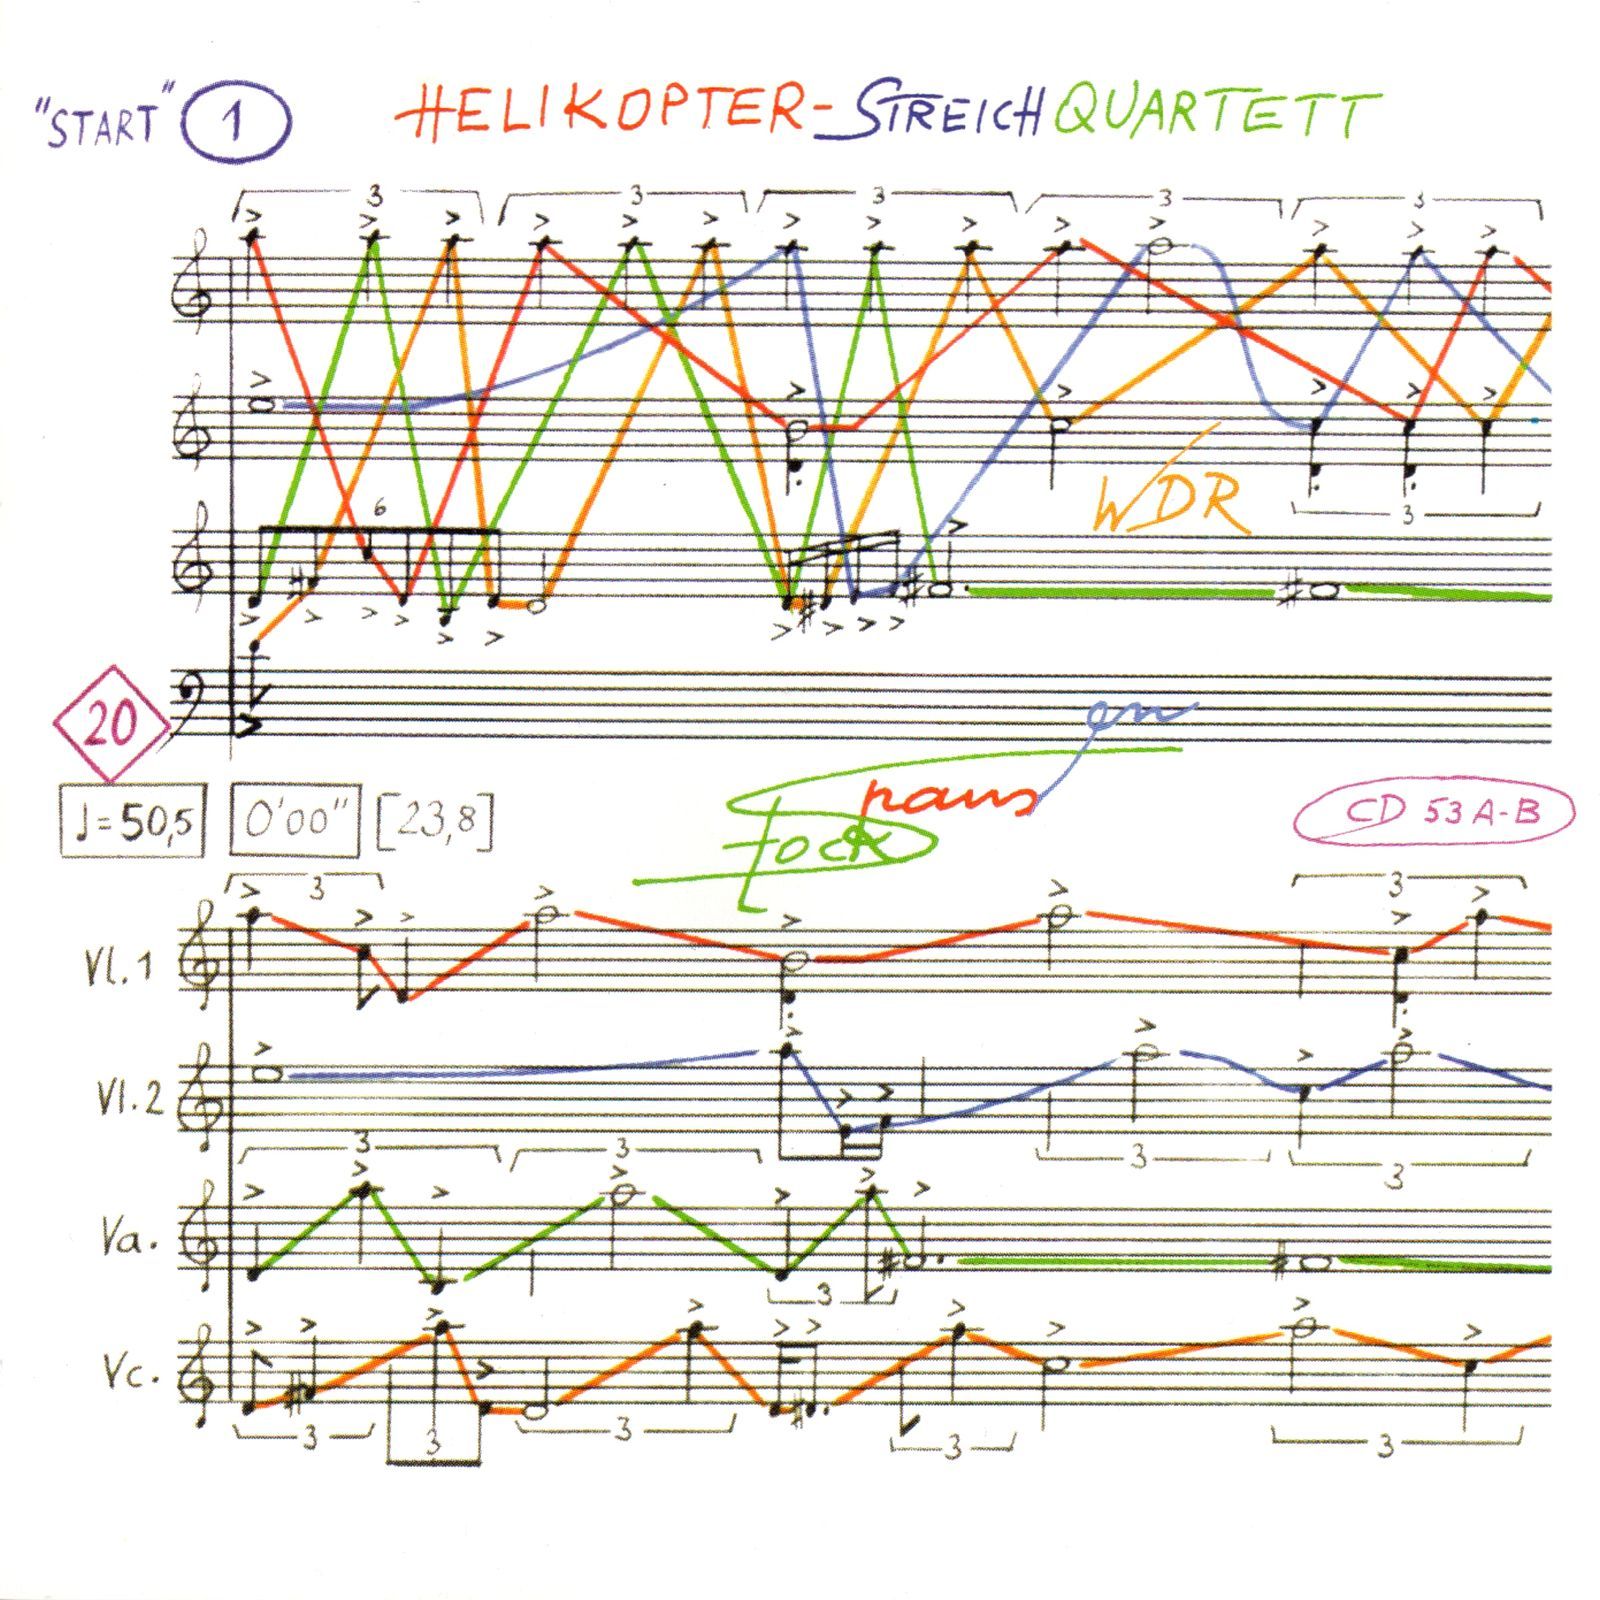 "START" 1 HELIKOPTER-STREICHQUARTETT
3 3 3 3 3
WDR
6
3
20
♩=50,5 0'00" [23,8]
CD 53 A-B
3 3
Vl.1
Vl.2
3 3 3 3
Va.
3
Vc.
3 3 3 3 3